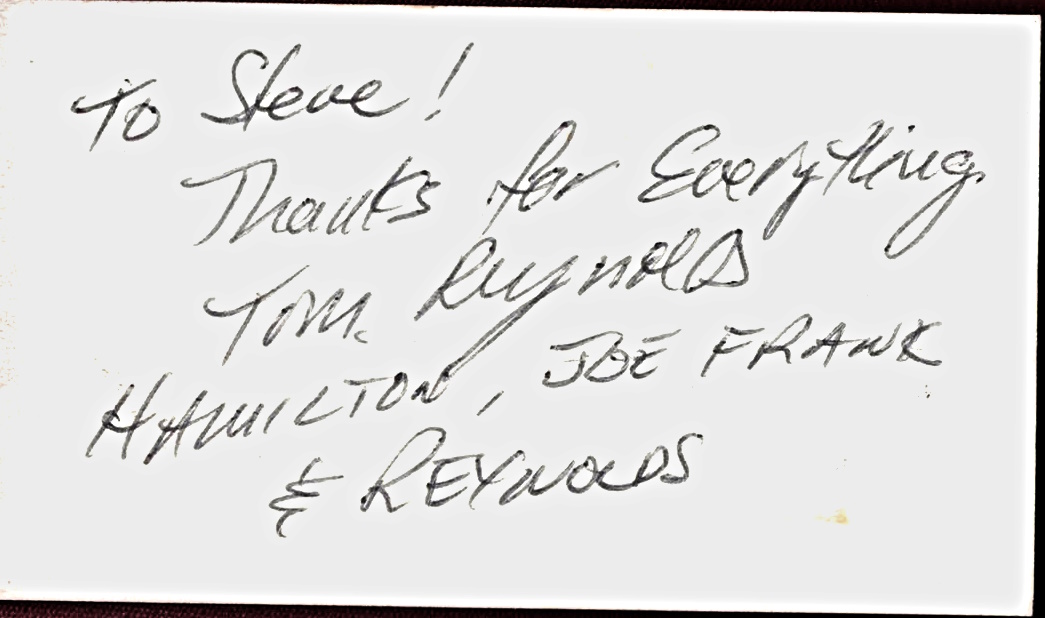 To Steve!
Thanks for Everything.
Tom Reynolds
HAMILTON, JOE FRANK
& REYNOLDS